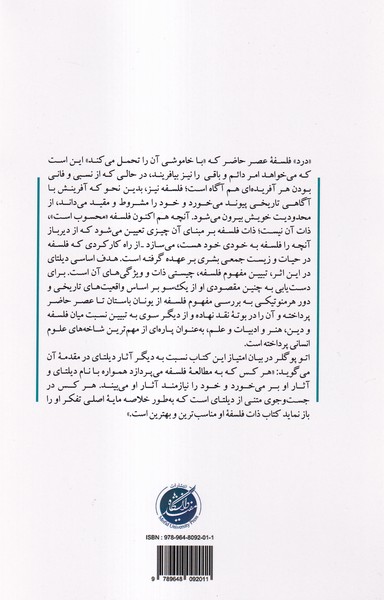 «درد» فلسفهٔ عصر حاضر که «با خاموشی آن را تحمل می‌کند» این است
که می‌خواهد امر دائم و باقی را نیز بیافریند، در حالی که از نسبی و فانی
بودن هر آفریده‌ای هم آگاه است؛ فلسفه نیز، بدین نحو که آفرینش با
آگاهی تاریخی پیوند می‌خورد و خود را مشروط و مقید می‌داند، از
محدودیت خویش بیرون می‌شود. آنچه هم اکنون فلسفه «محسوب است»،
ذات آن نیست؛ ذات فلسفه بر مبنای آن چیزی تعیین می‌شود که از دیرباز
آنچه را فلسفه به خودی خود هست، می‌سازد. از راه کارکردی که فلسفه
در حیات و زیست جمعی بشری بر عهده گرفته است. هدف اساسی دیلتای
در این اثر، تبیین مفهوم فلسفه، چیستی ذات و ویژگی‌های آن است. برای
دست‌یابی به چنین مقصودی او از یک‌سو بر اساس واقعیت‌های تاریخی و
دور هرمنوتیکی به بررسی مفهوم فلسفه از یونان باستان تا عصر حاضر
پرداخته و آن را در بوتهٔ نقد نهاده و از دیگر سوی به تبیین نسبت میان فلسفه
و دین، هنر و ادبیات و علم، به‌عنوان پاره‌ای از مهم‌ترین شاخه‌های علوم
انسانی پرداخته است.
اتو پوگلر در بیان امتیاز این کتاب نسبت به دیگر آثار دیلتای در مقدمهٔ آن
می‌گوید: «هر کس که به مطالعهٔ فلسفه می‌پردازد همواره با نام دیلتای و
آثار او بر می‌خورد و خود را نیازمند آثار او می‌بیند. هر کس در
جست‌وجوی متنی از دیلتای است که به‌طور خلاصه مایهٔ اصلی تفکر او را
باز نماید کتاب ذات فلسفهٔ او مناسب‌ترین و بهترین است.»
انتشارات
دانشگاه
مفید
Mofid University Press
ISBN : 978-964-8092-01-1
9 789648 092011